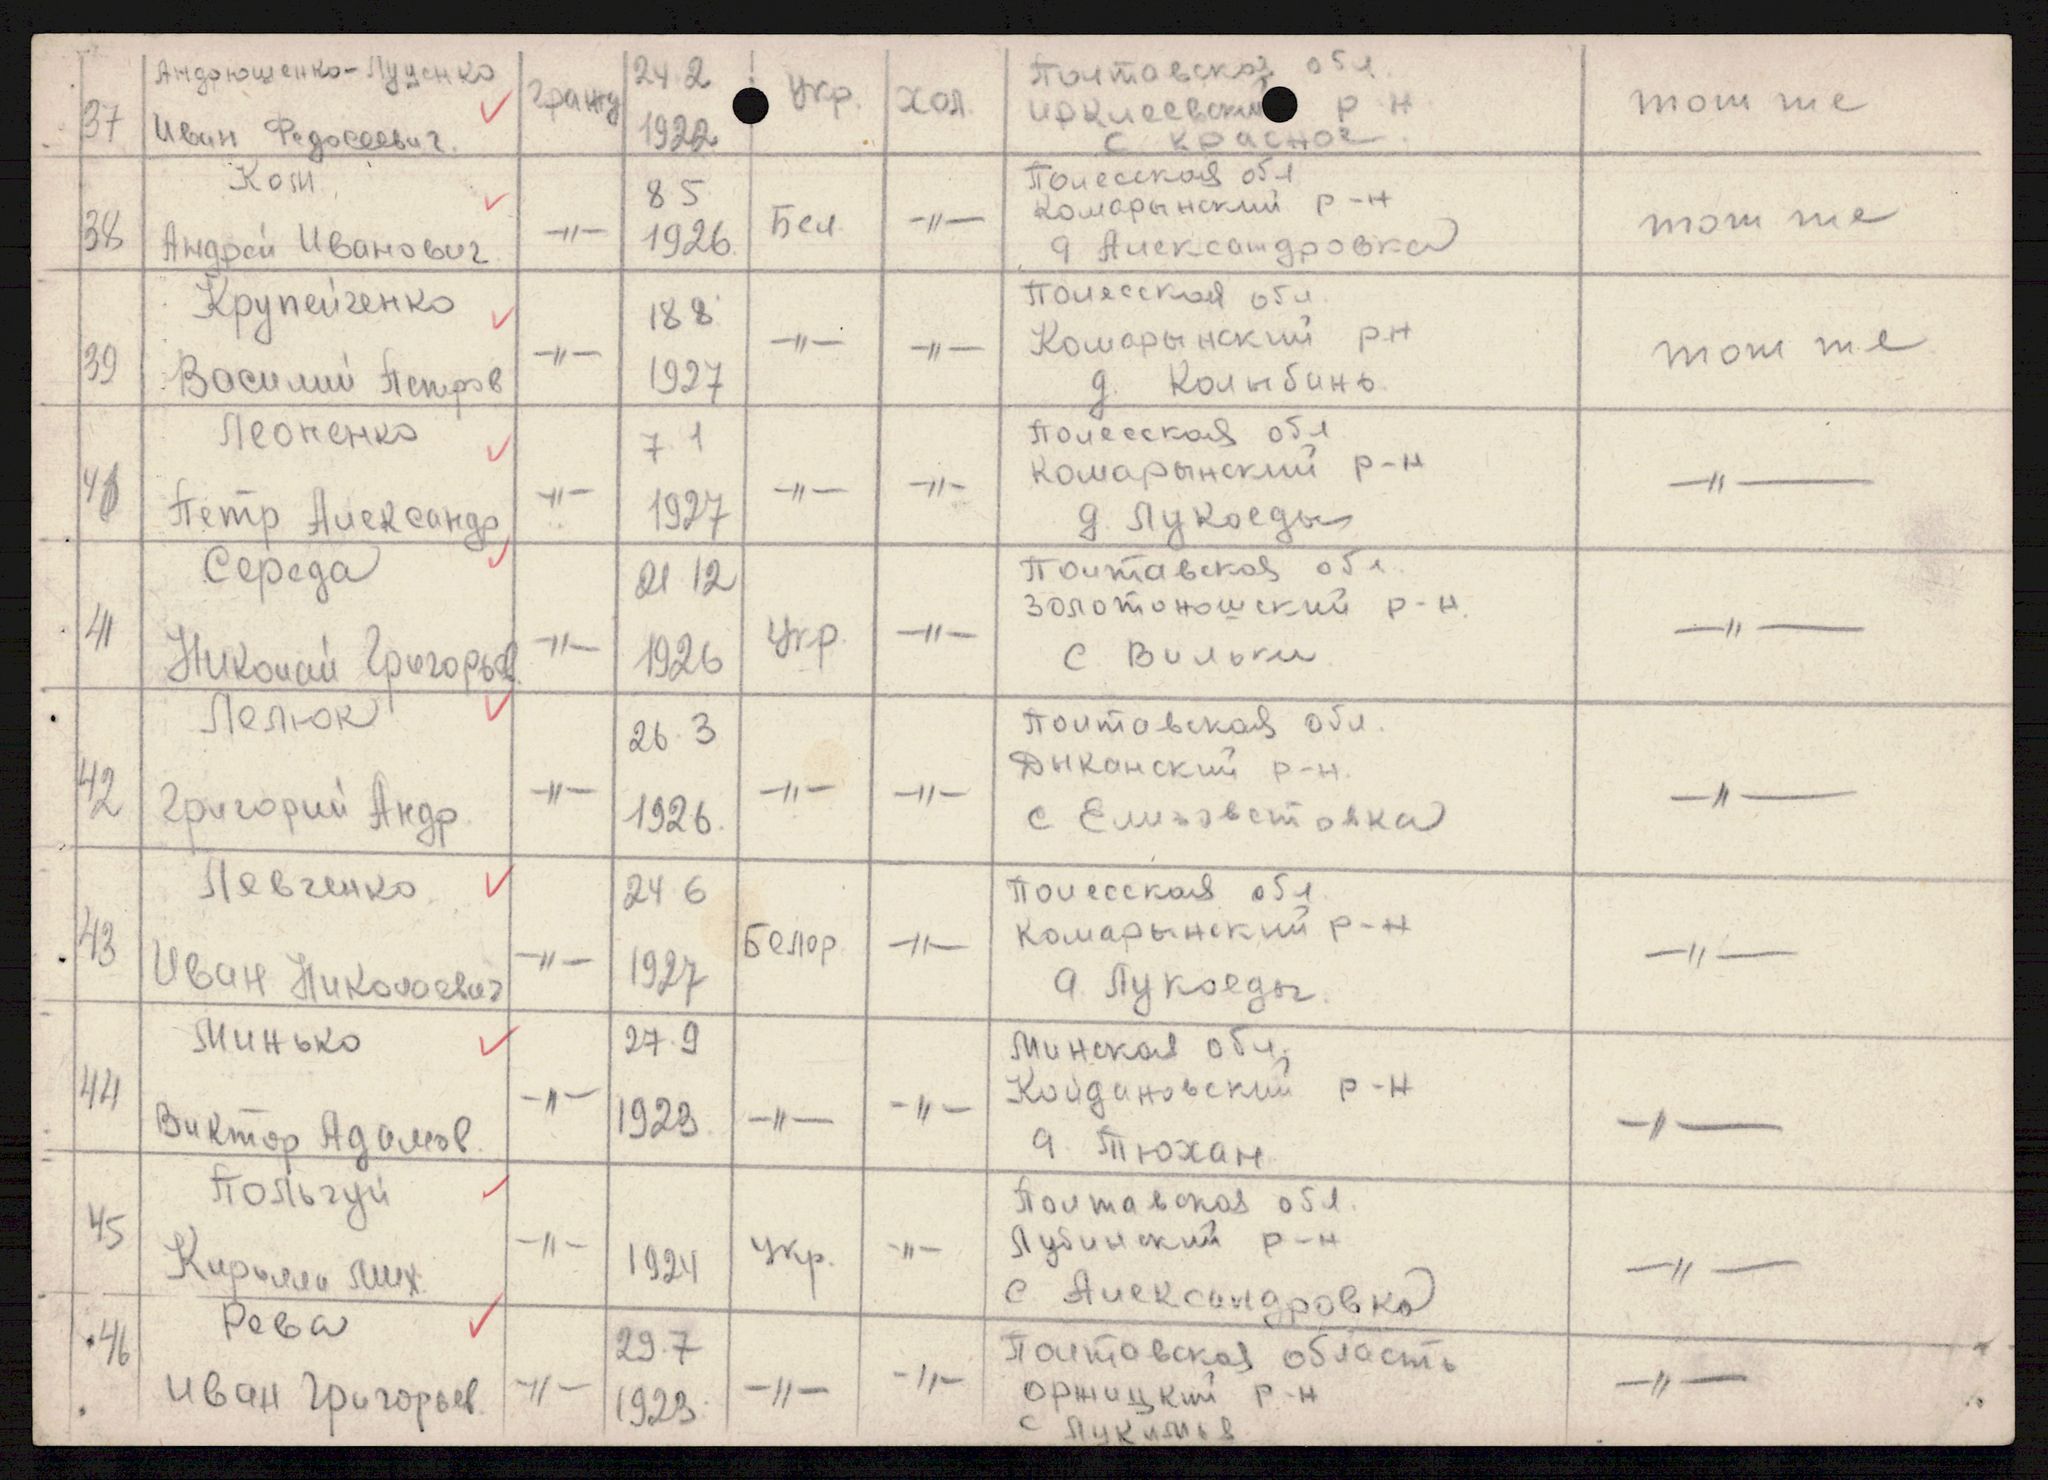 37 Андрющенко-Луценко Иван Федосеевич. гражд 24.2 1922 Укр. хол. Полтавской обл. Ирклеевский р-н с Красное тот же
38 Кот Андрей Иванович -"- 8 5 1926. Бел. -"- Полесская обл Комарынский р-н д Александровка тот же
39 Крупейченко Василий Петров -"- 18 8 1927 -"- -"- Полесская обл. Комарынский рн д. Колыбань тот же
Леоненко Петр Александр -"- 7 1 1927 -"- -"- Полесская обл Комарынский р-н д. Лукоеды -"-
41 Середа Николай Григорьев. -"- 21 12 1926 Укр. -"- Полтавская обл. Золотоношский р-н. с Вильки -"-
42 Лелюк Григорий Андр -"- 26.3 1926. -"- -"- Полтавская обл. Дыканский р-н. с Елизаветовка -"-
43 Левченко Иван Николаевич -"- 24 6 1927 Белор. -"- Полесская обл. Комарынский р-н д Лукоеды. -"-
44 Минько Виктор Адамов. -"- 27.9 1923. -"- -"- Минская обл. Койдановский р-н д. Тюхан -"-
45 Польгуй Кирилл Мих. -"- 1924 Укр. -"- Полтавская обл. Лубинский р-н с Александровка -"-
46 Рева Иван Григорьев. -"- 29.7 1923. -"- -"- Полтавская область Оржицкий р-н с